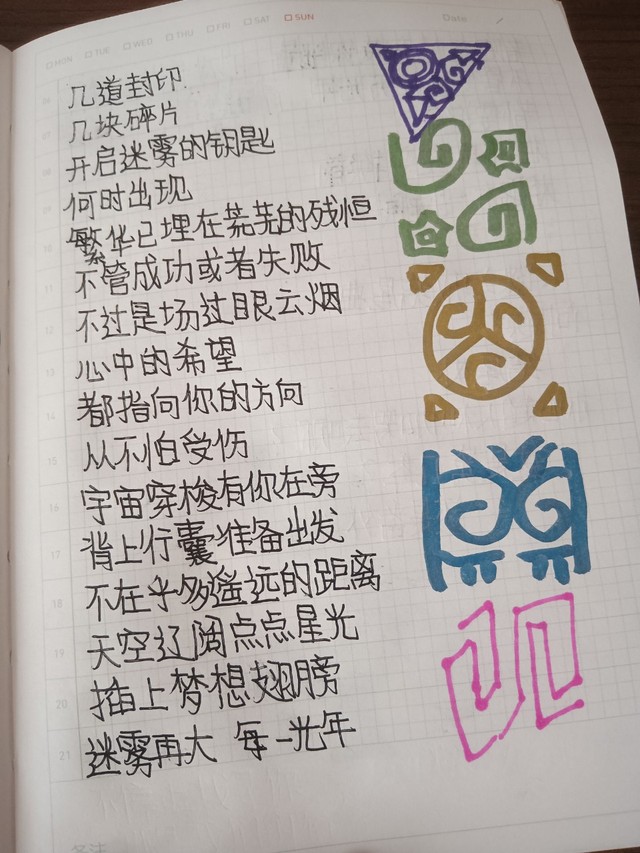 MON TUE WED THU FRI SAT SUN
几道封印
几块碎片
开启迷雾的钥匙
何时出现
繁华已埋在荒芜的残恒
不管成功或者失败
不过是场过眼云烟
心中的希望
都指向你的方向
从不怕受伤
宇宙穿梭有你在旁
背上行囊准备出发
不在乎多遥远的距离
天空辽阔点点星光
插上梦想翅膀
迷雾再大 每一光年
10
11
12
13
14
15
16
17
18
19
20
21
备注